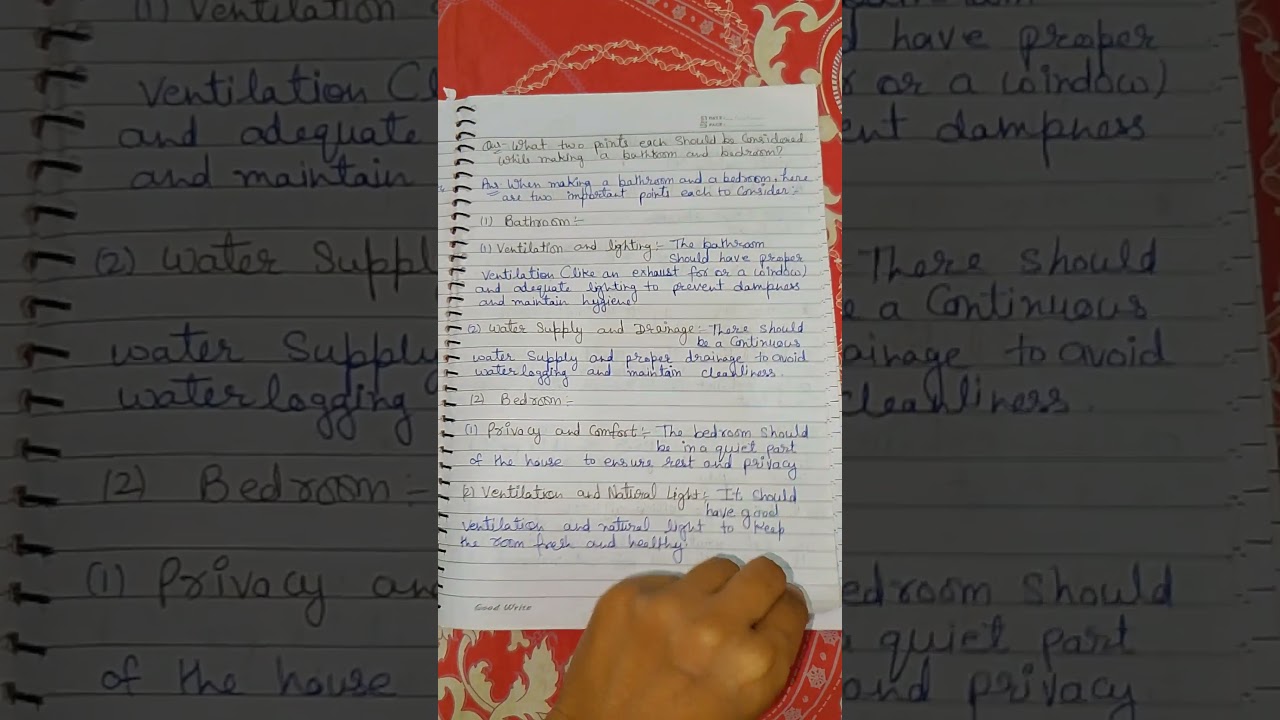 Qu- What two points each should be Considered
while making a bathroom and bedroom?
Ans- When making a bathroom and a bedroom, here
are two important points each to Consider:-
(1) Bathroom:-
(1) Ventilation and lighting:- The bathroom
should have proper
ventilation (like an exhaust for or a window)
and adequate lighting to prevent dampness
and maintain hygiene
(2) Water Supply and Drainage:- There should
be a Continuous
water Supply and proper drainage to avoid
waterlogging and maintain cleanliness.
(2) Bedroom:-
(1) Privacy and Comfort:- The bedroom should
be in a quiet part
of the house to ensure rest and privacy
(2) Ventilation and National Light:- It should
have good
ventilation and natural light to keep
the room fresh and healthy.
Good Write